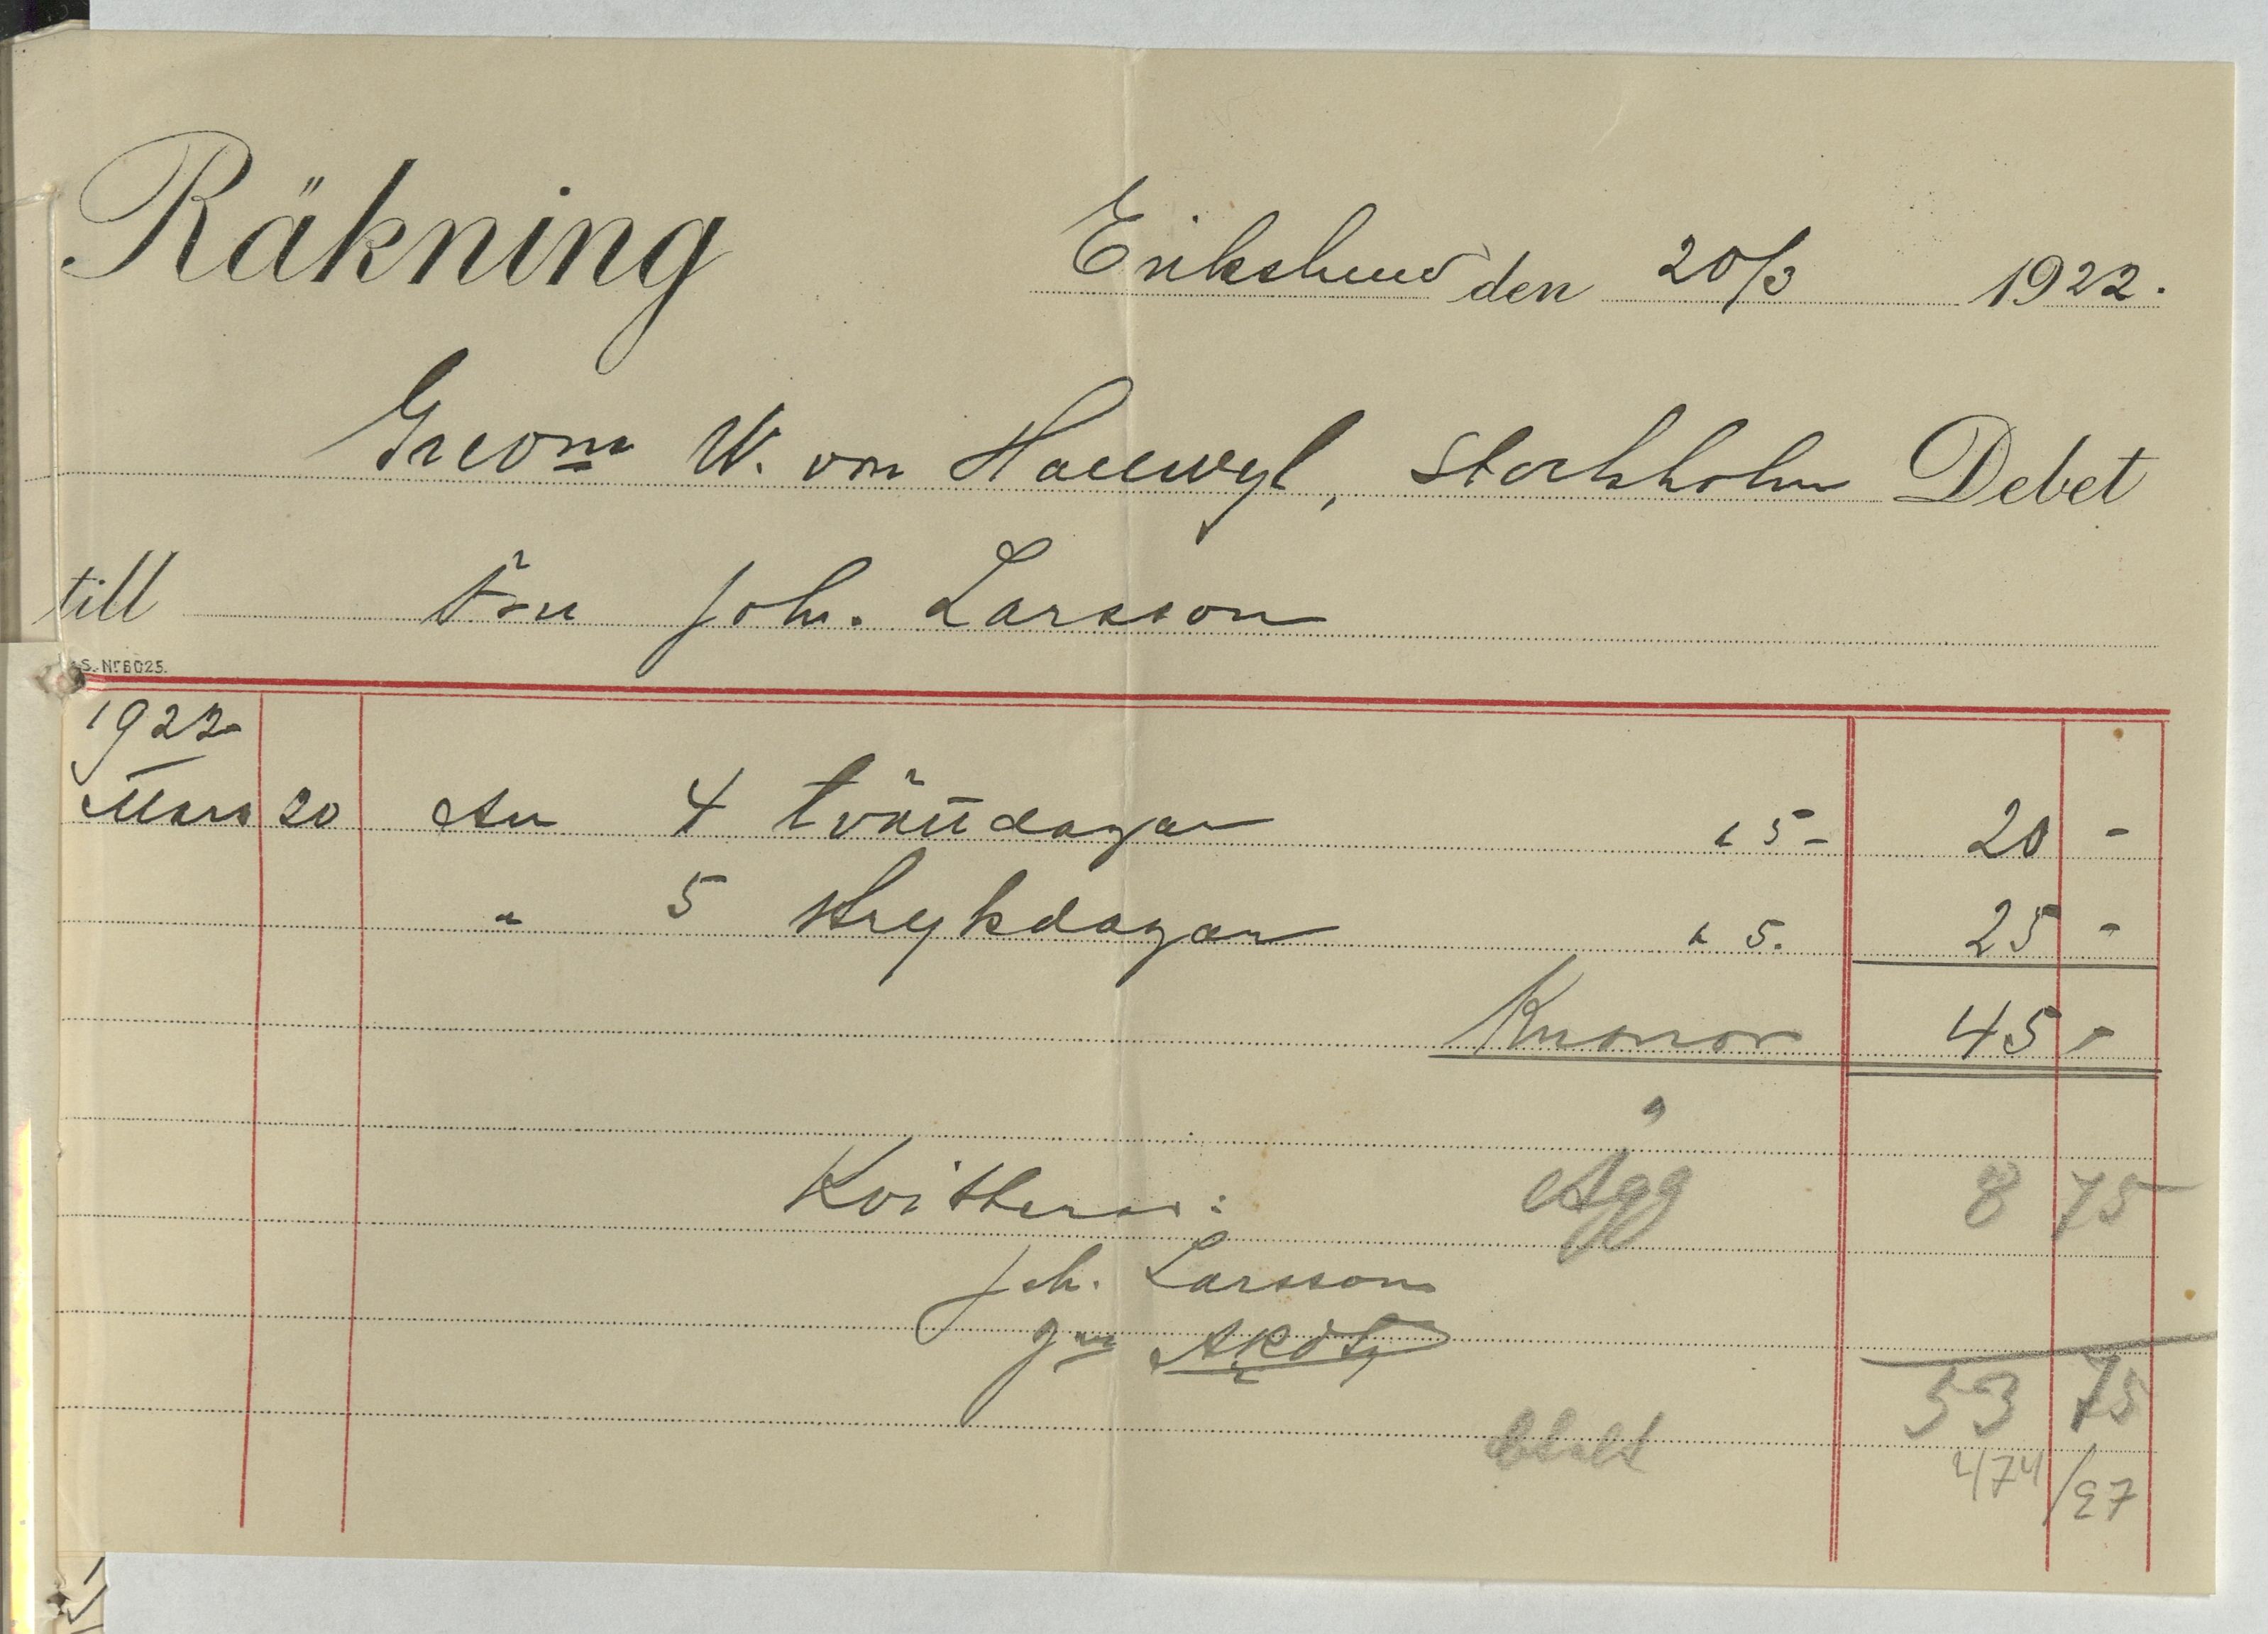 Räkning
Erikslund den 20/3 1922.
Grevn W. von Hallwyl, Stockholm Debet
till Fru Joh. Larsson
S. Nr 6025.
1922
Mars 20 An 4 tvättdagar à 5 - 20 -
" 5 strykdagar à 5. 25 -
Kronor 45 -
Ägg 8 75
Kvitteras:
Joh. Larsson
gm
53 75
betalt
474/27